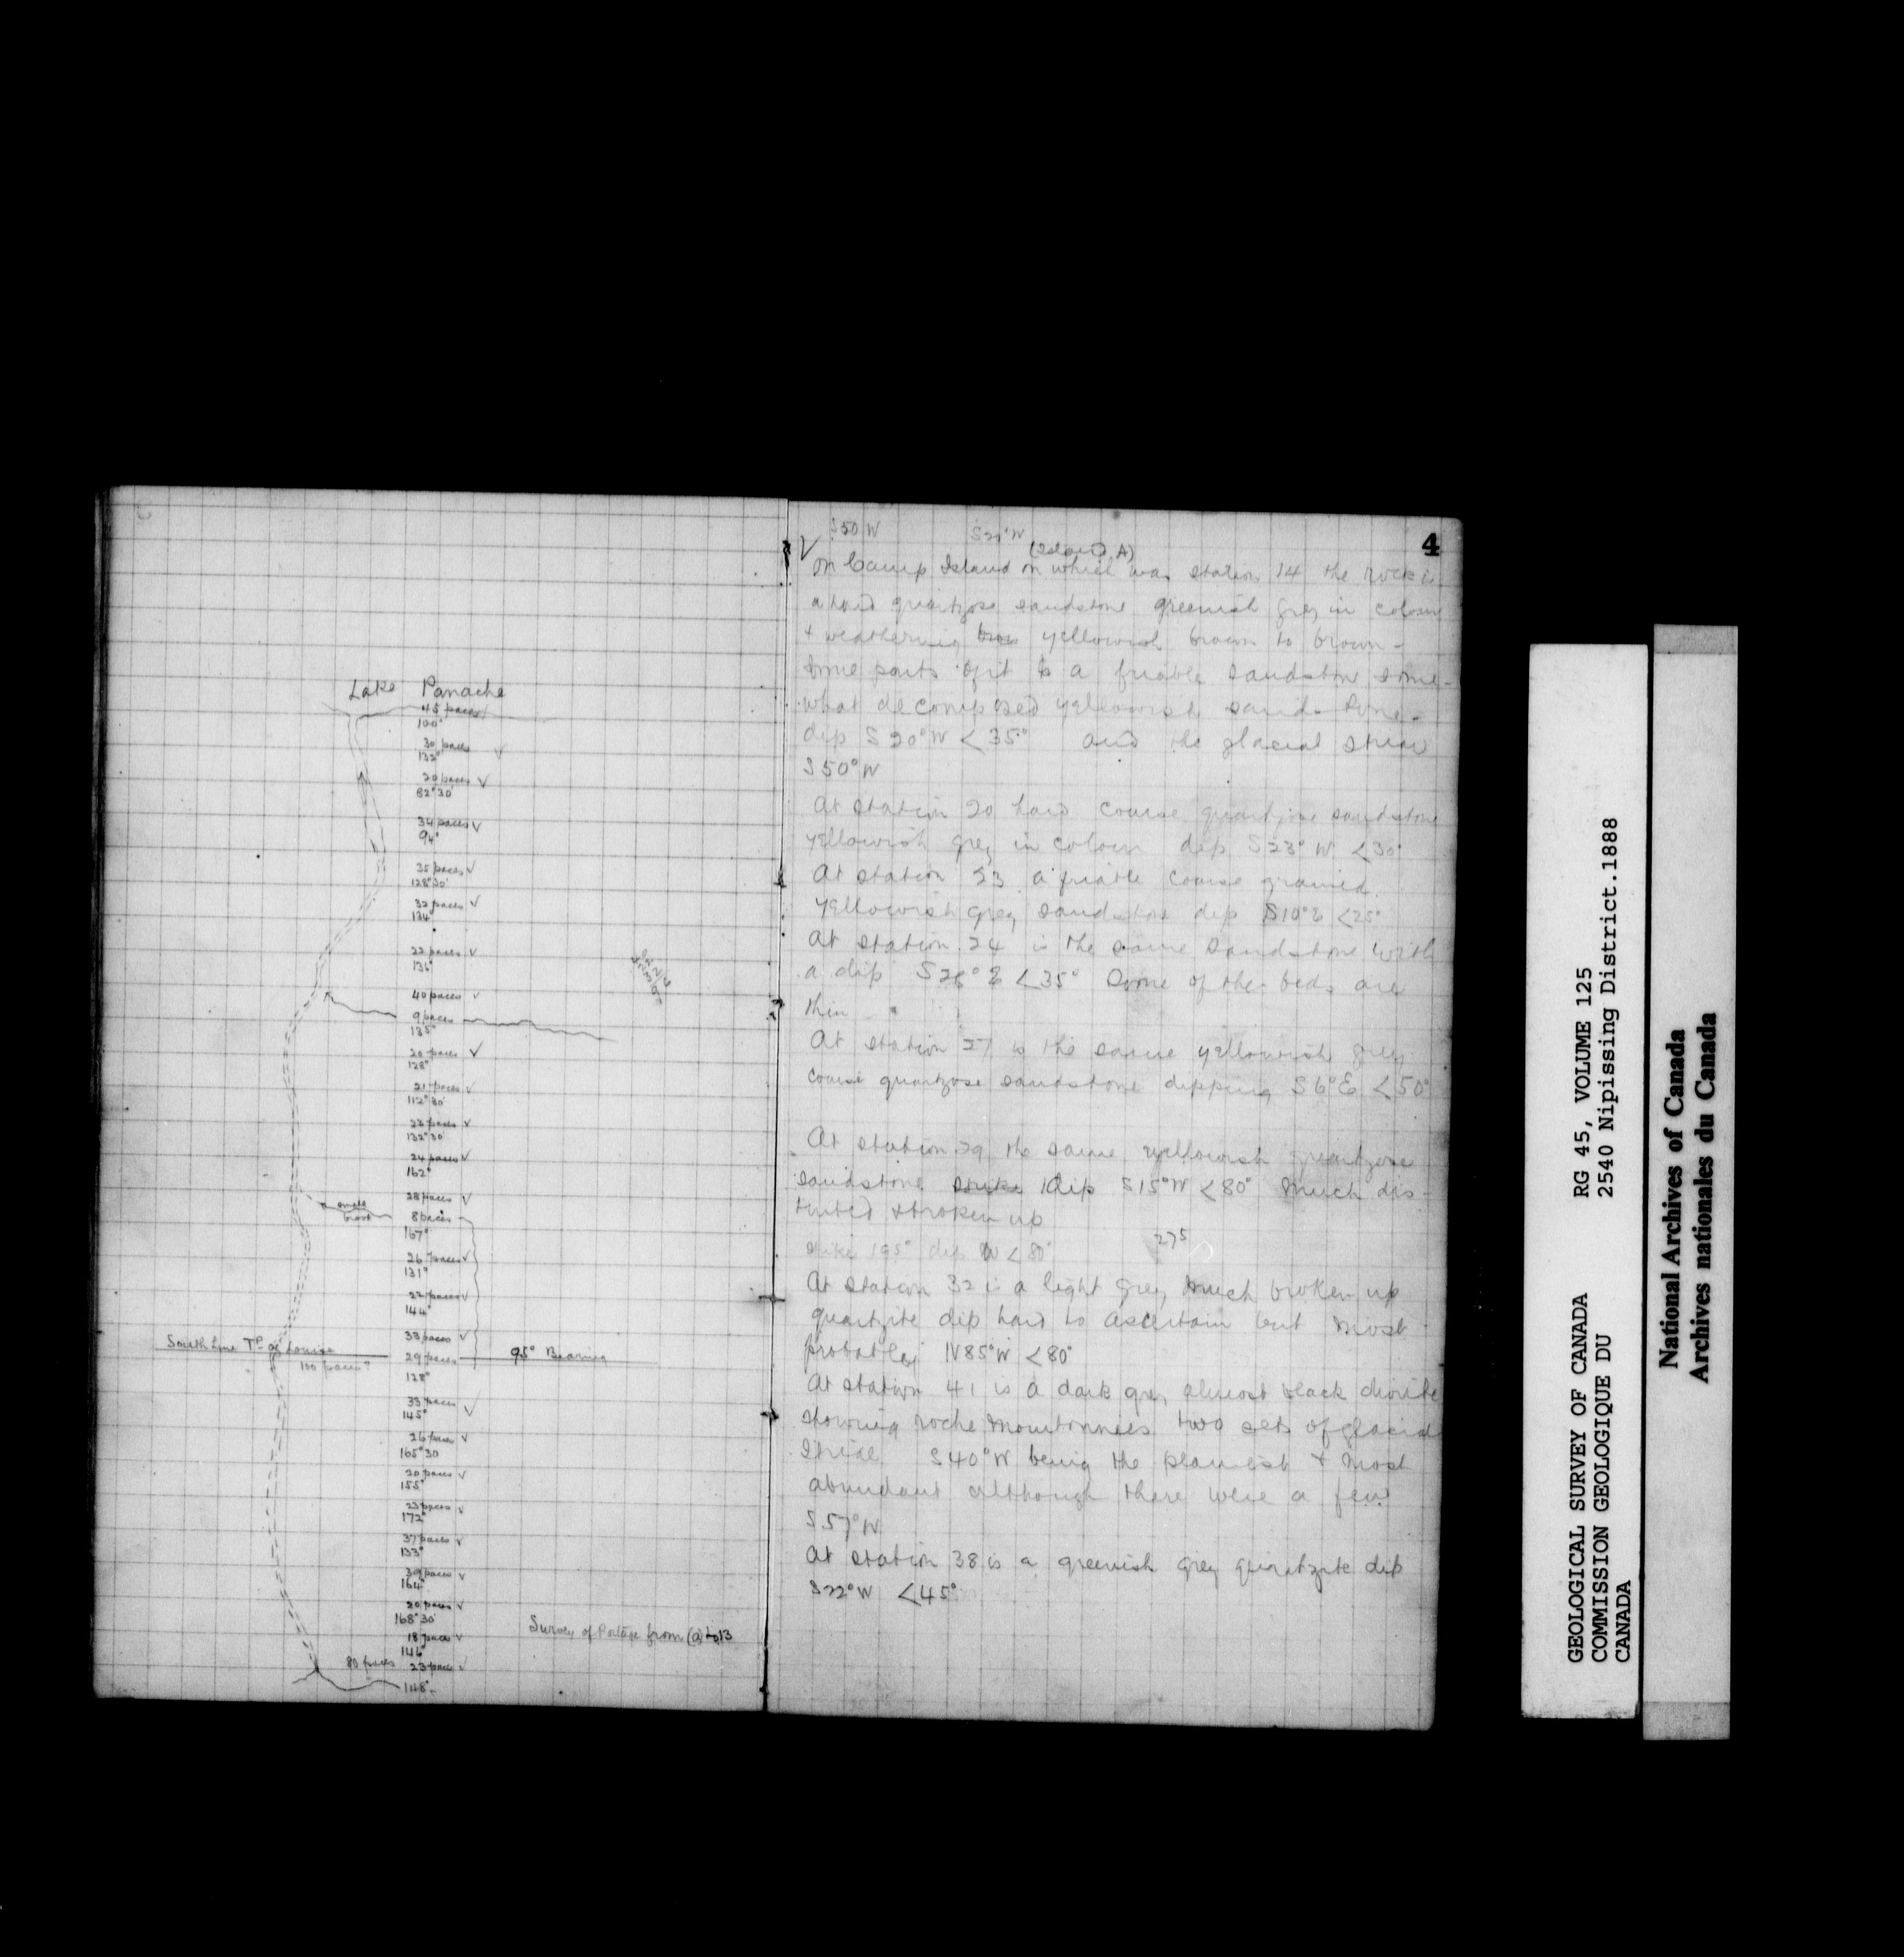 Lake Panache
45 paces
100°
30 paces
132°
20 paces
82°30'
34 paces
94°
35 paces
128°30'
32 paces
134°
22 paces
136°
40 paces
9 paces
135°
20 paces
128°
21 paces
112°30'
23 paces
132°30'
24 paces
162°
28 paces
small
brook
8 paces
167°
26 paces
131°
22 paces
144°
33 paces
South Line Tp of Louise
100 paces?
29 paces
95° Bearing
128°
33 paces
145°
26 paces
165°30
20 paces
155°
23 paces
172°
37 paces
133°
39 paces
164°
20 paces
168°30'
18 paces
146°
80 paces
23 paces
148°
Survey of Portage from (a) to 13
4
S50W
S20°W
(Island A)
On Camp Island on which was station 14 the rock is
a hard quartzose sandstone greenish grey in colour
& weathering yellowish brown to brown -
Some parts of it is a friable sandstone some-
what decomposed yellowish sandstone.
dip S20°W <35° and the glacial striae
S50°W
At station 20 hard coarse quartzose sandstone
yellowish grey in colour dip S23°W <30°
At station 23 a friable coarse grained
yellowish grey sandstone dip S10°E <25°
At station 24 is the same sandstone with
a dip S28°E <35° Some of the beds are
thin
At station 27 is the same yellowish grey
coarse quartzose sandstone dipping S6°E <50°
At station 29 the same yellowish quartzose
sandstone strike dip S15°W <80° Much dis-
turbed & broken up
strike 195° dip W <80°
275
At station 32 is a light grey much broken up
quartzite dip hard to ascertain but most
probably N85°W <80°
At station 41 is a dark grey almost black diorite
showing roche moutonnees two sets of glacial
striae S40°W being the plainest & most
abundant although there were a few
S57°W
At station 38 is a greenish grey quartzite dip
S22°W <45°
GEOLOGICAL SURVEY OF CANADA RG 45, VOLUME 125
COMMISSION GEOLOGIQUE DU 2540 Nipissing District.1888
CANADA
National Archives of Canada
Archives nationales du Canada